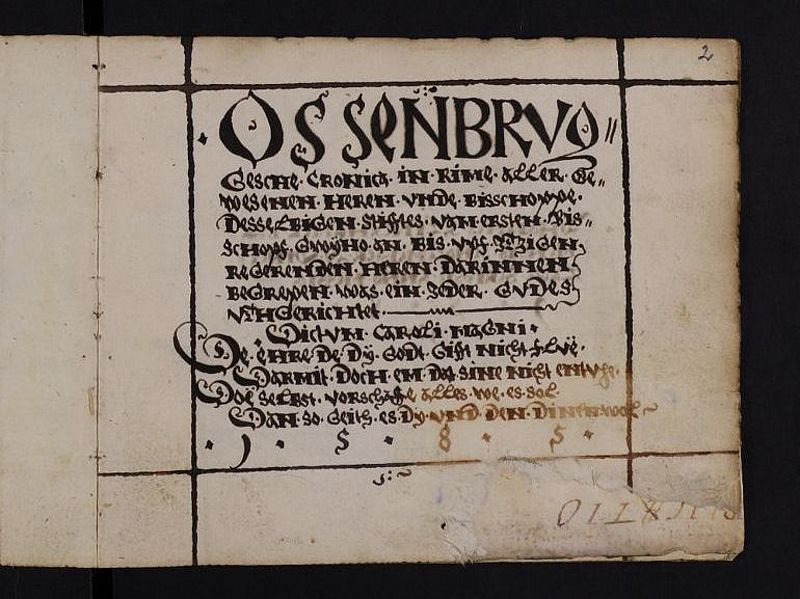 2
OSSENBRVG=
GESCHE · CRONICA · IN · RIME · ALLER · GE=
WESENEN · HEREN · VNDE · BISSCHOPPE ·
DESSELBIGEN · STIFFTES · VAN · ERSTEN · BIS=
SCHOPF · GWYHO · AN · BIS · VPF · ITZIGEN
REGERENDEN · HEREN · DARINNEN
BEGREPEN · WAS · EIN · JEDER · GVDES
VTHGERICHTET ·
DICTVM · CAROLI · MAGNI ·
DE · EHRE · DE · DY · GODT · GIFFT · NICHT · FLVE ·
DARMIT · DOCH · EM · DAT · SINE · NICHT · ENTUHE ·
DOE · SELBST · VORSCHAFFE · ALLES · WE · ES · SOL ·
DAN · SO · GEITH · ES · DY · VND · DEN · DINEN · WOL
· 1 · 5 · 8 · 5 ·